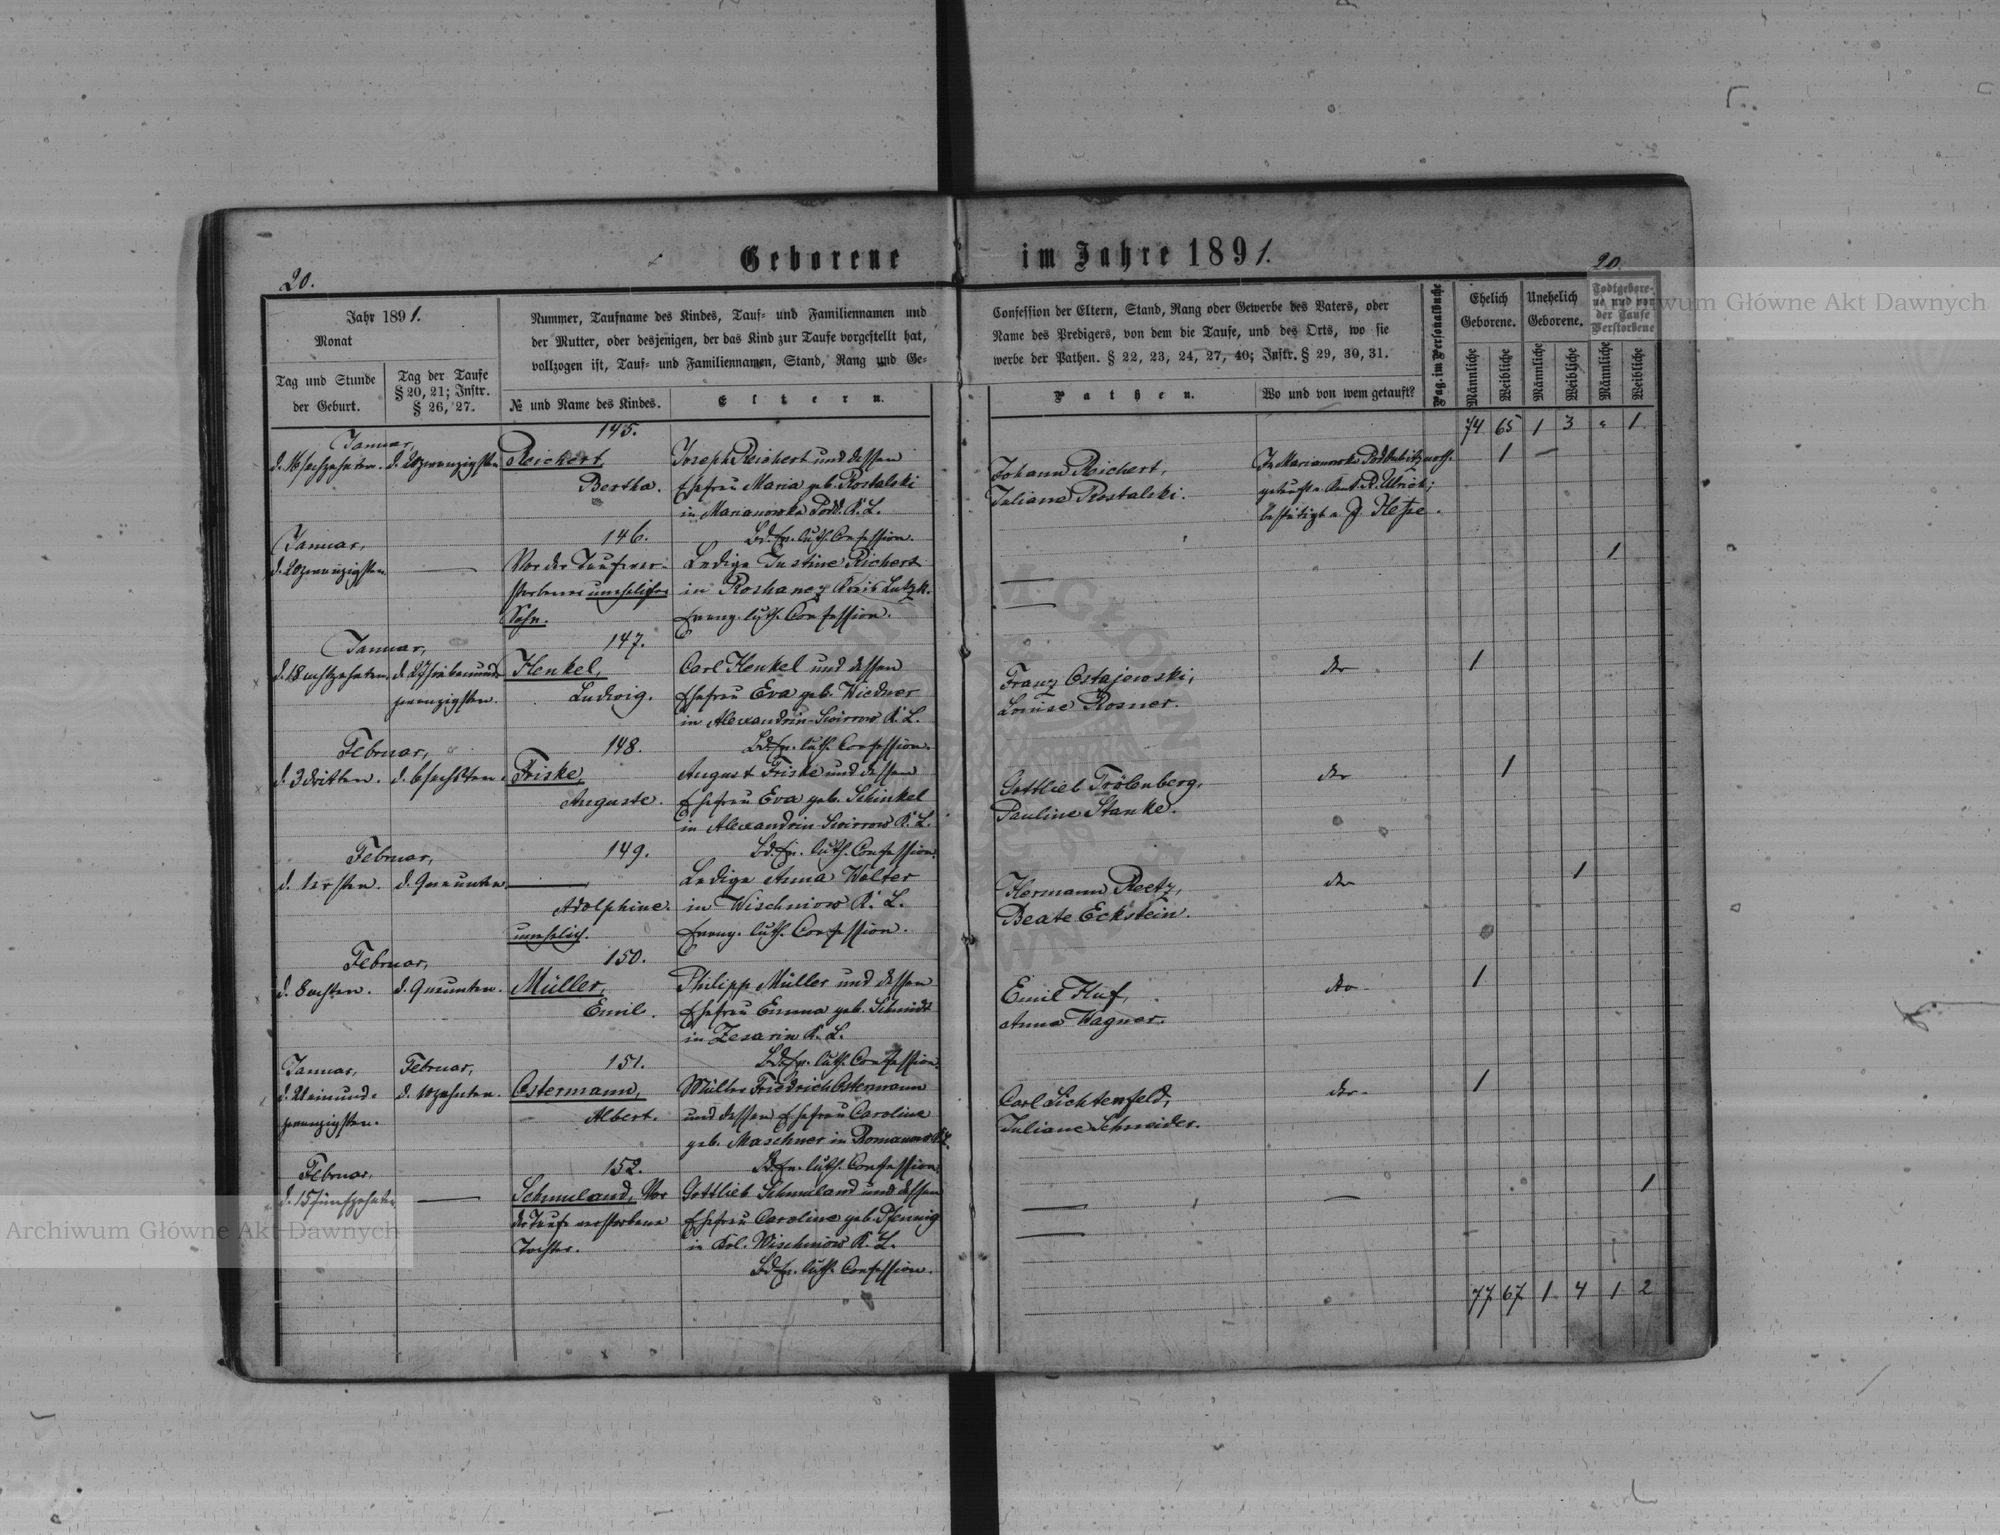 Geborene im Jahre 1891.
20.
20.
Jahr 1891.
Monat
Tag und Stunde der Geburt.
Tag der Taufe § 20, 21; Instr. § 26, 27.
Nummer, Taufname des Kindes, Tauf- und Familiennamen und
der Mutter, oder desjenigen, der das Kind zur Taufe vorgestellt hat,
vollzogen ist, Tauf- und Familiennamen, Stand, Rang und Ge-
№ und Name des Kindes.
Eltern.
Confession der Eltern, Stand, Rang oder Gewerbe des Vaters, oder
Name des Predigers, von dem die Taufe, und des Orts, wo sie
werbe der Pathen. § 22, 23, 24, 27, 40; Instr. § 29, 30, 31.
Pathen.
Wo und von wem getauft?
Pag. im Personalbuche
Ehelich Geborene.
Unehelich Geborene.
Todtgeborene und vor der Taufe Verstorbene
Männliche
Weibliche
Männliche
Weibliche
Männliche
Weibliche
74 65 1 3 " 1
145.
Januar,
d. 16 sechzehnten. d. 20 zwanzigsten
Reichert,
Bertha.
Joseph Reichert und dessen
Ehefrau Maria geb. Rostalski
in Marianowka Podd. K. L.
Bd. Ev. luth. Confession.
Johann Reichert,
Juliane Rostalski.
In Marianowka Poddubitz noth-
getauft v. Kant. R. Ulrich;
bestätigt v. P.
1
146.
Januar,
d. 20 zwanzigsten
Vor der Taufe ver-
storbener unehelicher
Sohn.
Ledige Justine Richert
in Roshanez Kreis Lutzk.
Evang. luth. Confession.
1
147.
Januar,
d. 18 achtzehnten. d. 27 siebenund-
zwanzigsten.
Henkel,
Ludwig.
Carl Henkel und dessen
Ehefrau Eva geb. Wiedner
in Alexandrin-Swirrow K. L.
Bd. Ev. luth. Confession.
Franz Ostajewski,
Louise Rosner.
1
148.
Februar,
d. 3 dritten. d. 6 sechsten.
Friske,
Auguste.
August Friske und dessen
Ehefrau Eva geb. Schinkel
in Alexandrin-Swirrow K. L.
Bd. Ev. luth. Confession.
Gottlieb Trölenberg,
Pauline Stanke.
1
149.
Februar,
d. 1 ersten. d. 9 neunten.
Adolphine.
unehelich.
Ledige Anna Wolter
in Wischniow K. L.
Evang. luth. Confession.
Hermann Reetz,
Beate Eckstein.
1
150.
Februar,
d. 8 achten. d. 9 neunten.
Müller,
Emil.
Philipp Müller und dessen
Ehefrau Emma geb. Schmidt
in Zesarin K. L.
Bd. Ev. luth. Confession.
Emil Huf,
Anna Wagner.
1
151.
Januar,
d. 21 einund-
zwanzigsten.
Februar,
d. 10 zehnten.
Ostermann,
Albert.
Müller Friedrich Ostermann
und dessen Ehefrau Caroline
geb. Maschner in Romanow K. L.
Bd. Ev. luth. Confession.
Carl Lichtenfeld,
Juliane Schneider.
1
152.
Februar,
d. 15 fünfzehnten
Schmuland, Vor
der Taufe verstorbene
Tochter.
Gottlieb Schmuland und dessen
Ehefrau Caroline geb. Pfennig
in Kol. Wischniow K. L.
Bd. Ev. luth. Confession.
1
77 67 1 4 1 2
Archiwum Główne Akt Dawnych
Archiwum Główne Akt Dawnych